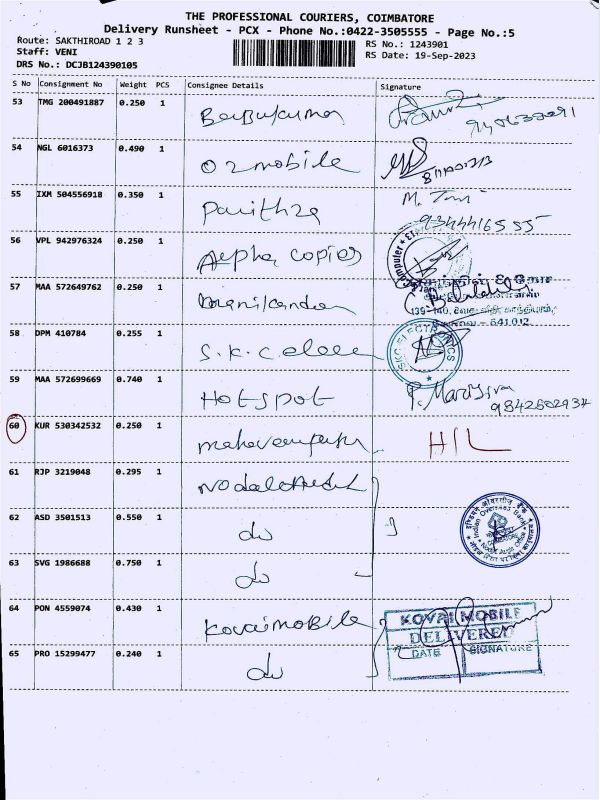 THE PROFESSIONAL COURIERS, COIMBATORE
Delivery Runsheet - PCX - Phone No.:0422-3505555 - Page No.:5
Route: SAKTHIROAD 1 2 3
RS No.: 1243901
Staff: VENI
RS Date: 19-Sep-2023
DRS No.: DCJB124390105
S No Consignment No Weight PCS Consignee Details Signature
53 TMG 200491887 0.250 1 Babukumar
54 NGL 6016373 0.490 1 O2mobile
55 IXM 504556918 0.350 1 Pavithra M.
9344416555
56 VPL 942976324 0.250 1 Alpha copier
Computer
57 MAA 572649762 0.250 1 Manikandan
139-140,
641012
58 DPM 410784 0.255 1 S.K.C elec
SKC ELECTRONICS
59 MAA 572699669 0.740 1 HOtSPOt P.
9842602934
60 KUR 530342532 0.250 1 H/L
61 RJP 3219048 0.295 1
62 ASD 3501513 0.550 1 do
Indian Overseas Bank
63 SVG 1986688 0.750 1 do
64 PON 4559074 0.430 1 Kovaimobile
KOVAI MOBILE
DELIVERED
65 PRO 15299477 0.240 1 do
DATE SIGNATURE